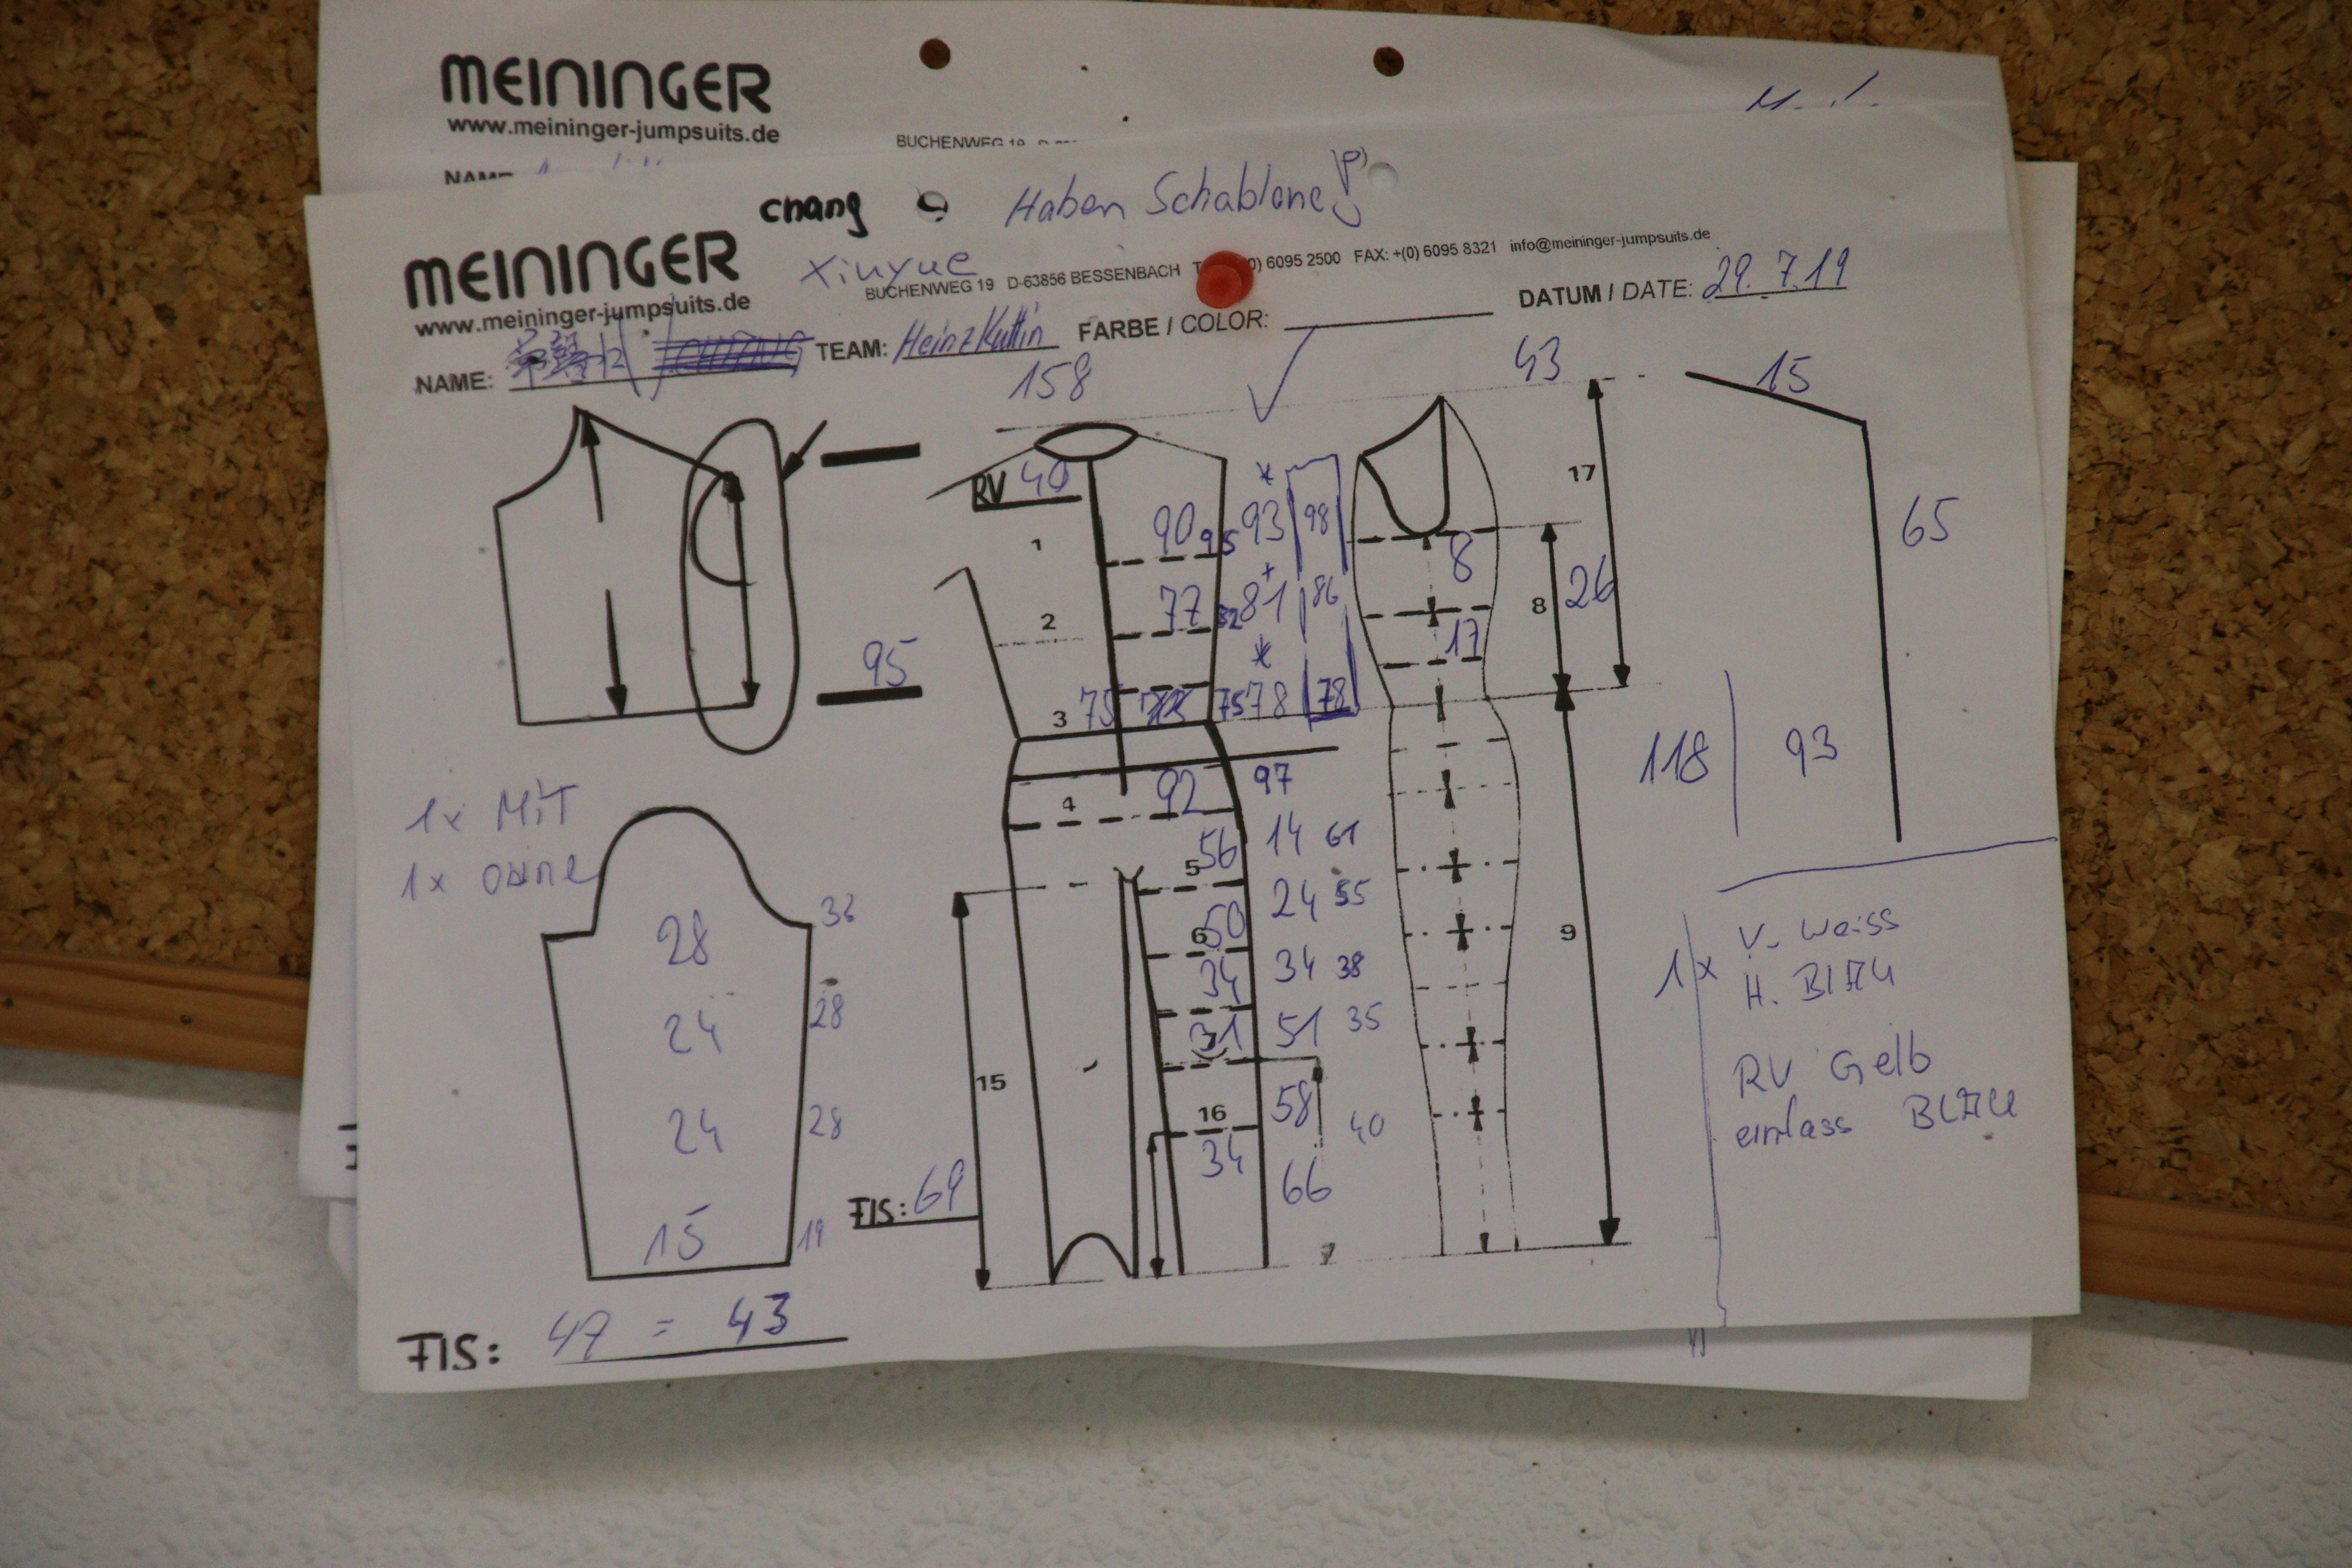 MEININGER
www.meininger-jumpsuits.de
chang
Haben Schablone!
MEININGER
Xinyue
BUCHENWEG 19 D-63856 BESSENBACH 6095 2500 FAX: +(0) 6095 8321 info@meininger-jumpsuits.de
www.meininger-jumpsuits.de
NAME: TEAM: Heinz Kuttin FARBE / COLOR: DATUM / DATE: 29.7.19
158
43
15
RV 40
17
65
1 90 95 93 98
8
2 77 82 81 86
8 26
17
95
3 75 75 78 78
118 93
4 92 97
1x MiT
5 56 14 61
1x ohne
6 50 24 55
28 36
34 34 38
9
1x V. weiss
H. BLAU
24 28
31 51 35
RV Gelb
15
einfass BLAU
24 28
16 58 40
34 66
FIS: 69
15 19
7
FIS: 47 = 43